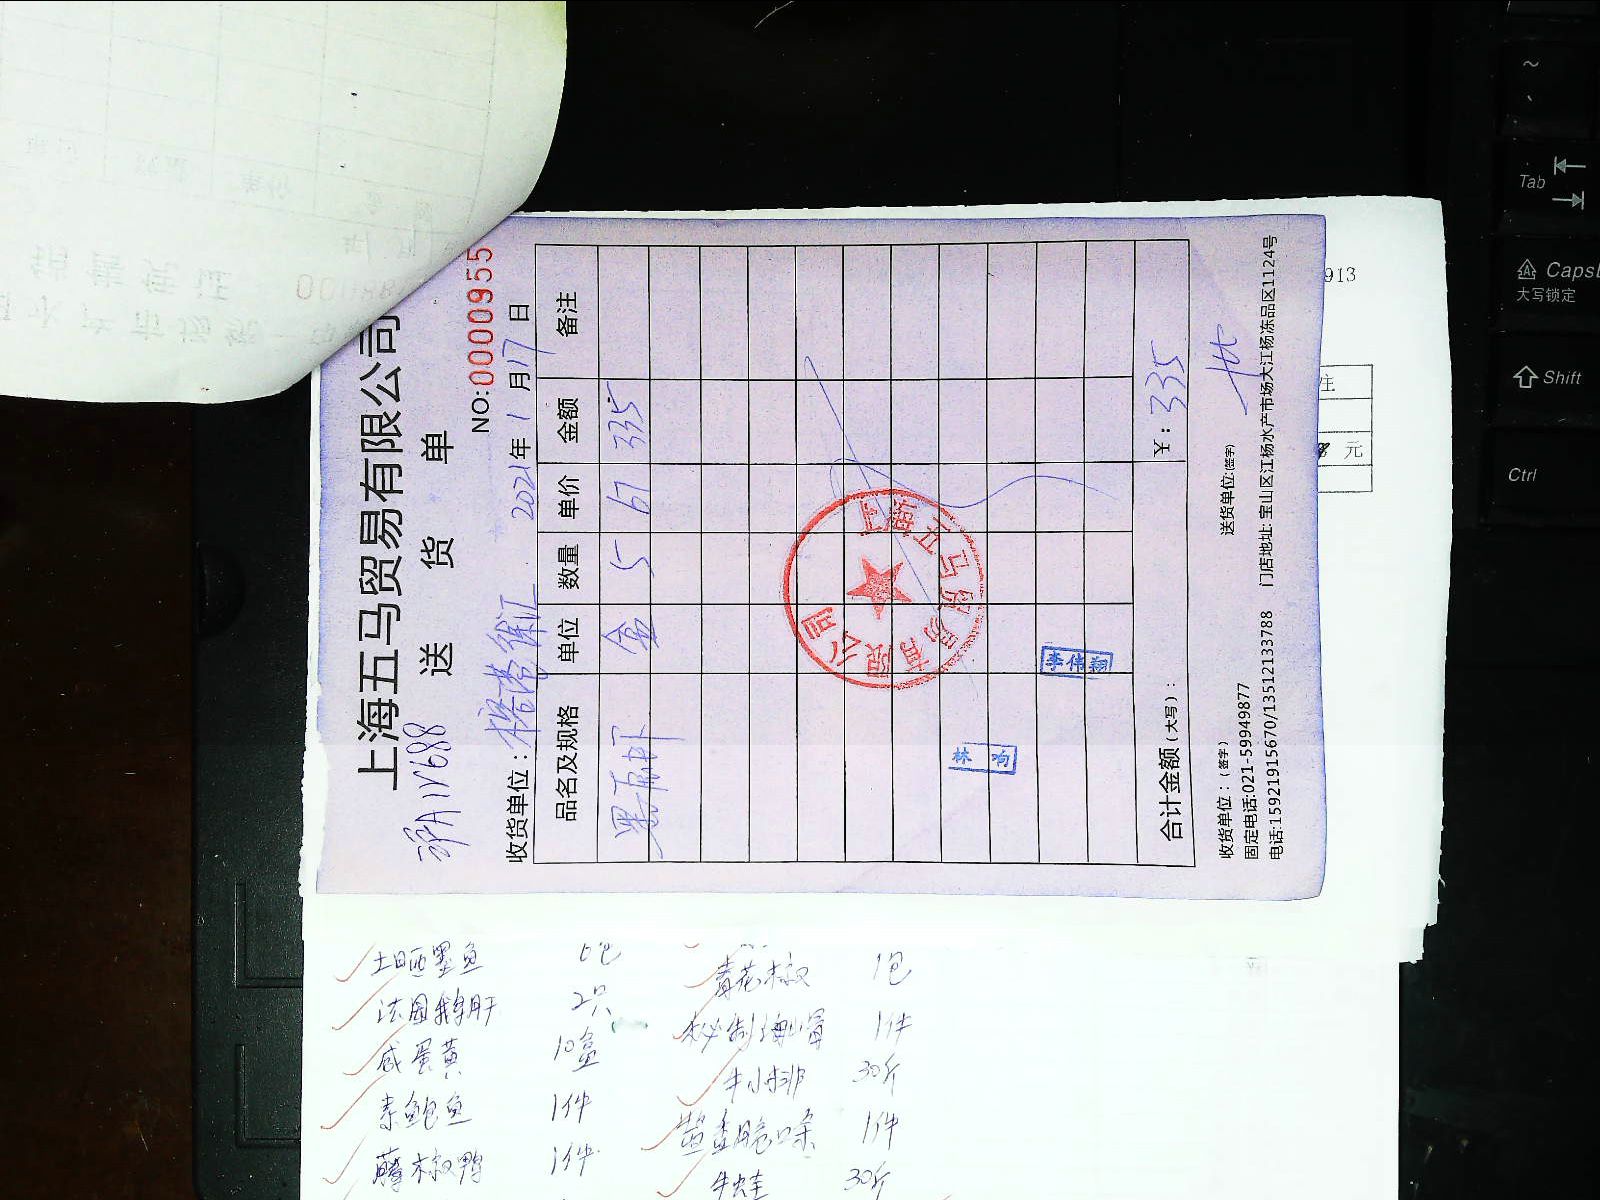 上海五马贸易有限公司
送 货 单
沪A1V688
NO:0000955
收货单位: 2021年1月17日
品名及规格 单位 数量 单价 金额 备注
黑虎虾 盒 5 67 335
上海五马贸易有限公司
林 响
李伟翔
合计金额(大写): ¥: 335
收货单位:(签字) 送货单位:(签字)
固定电话:021-59949877
电话:15921915670/13512133788 门店地址: 宝山区江杨水产市场大江杨冻品区1124号
913
注
元
土晒墨鱼
法国鹅肝 2只
咸蛋黄 10盒
素鲍鱼 1件
藤椒鸭 1件
青花椒 1包
秘制海螺 1件
牛小排 30斤
1件
牛蛙 30斤
~
Tab
Caps
大写锁定
Shift
Ctrl